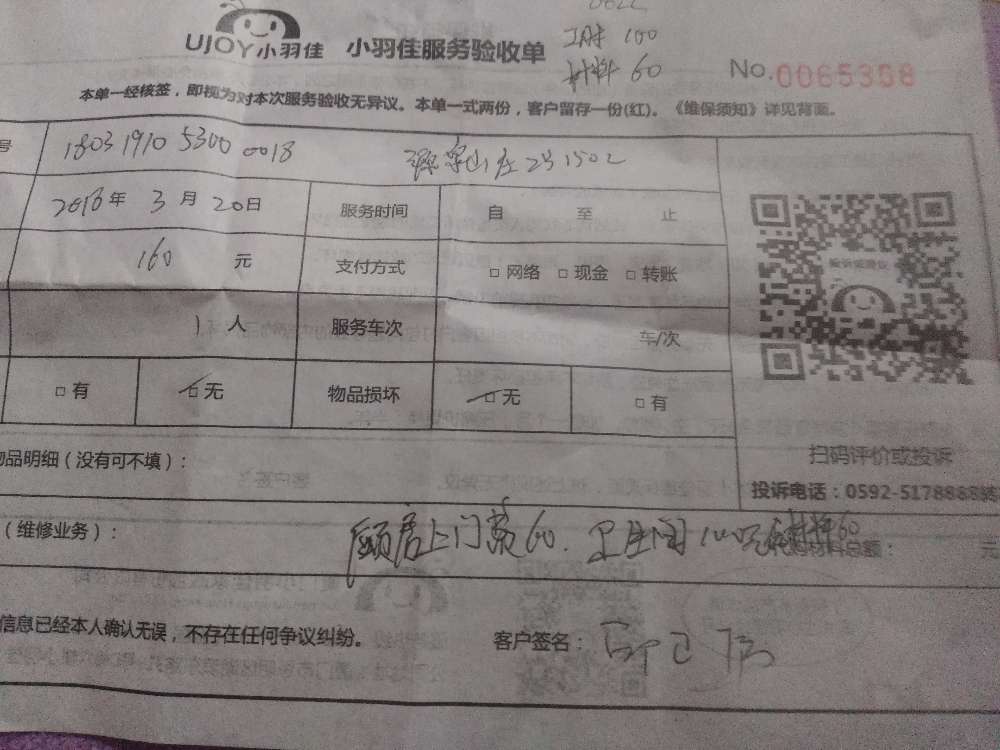 工时 100
材料 60
UJOY小羽佳 小羽佳服务验收单
No.0065308
本单一经核签，即视为对本次服务验收无异议。本单一式两份，客户留存一份(红)。《维保须知》详见背面。
号 1803 1910 5300 0018 2号1502
2018年 3月 20日 服务时间 自 至 止
160 元 支付方式 □网络 □现金 □转账
1人 服务车次 车/次
□有 □无 物品损坏 □无 □有
扫码评价或投诉
物品明细（没有可不填）：
投诉电话：0592-5178888转
（维修业务）： 上门费60. 卫生间100元 材料60
材料总额： 元
信息已经本人确认无误，不存在任何争议纠纷。 客户签名：